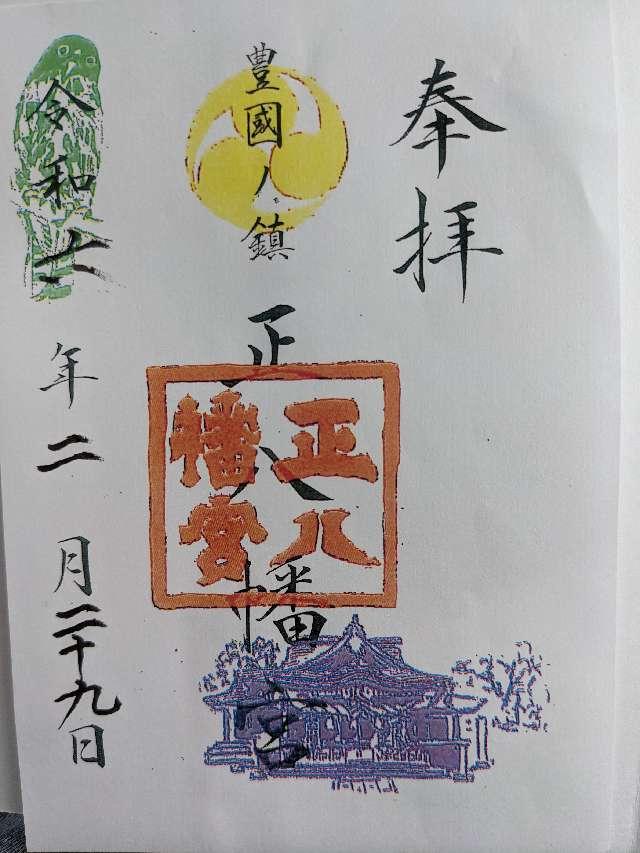 奉拝
豊國八鎮
正八幡宮
正八
幡宮
令和六年二月二十九日